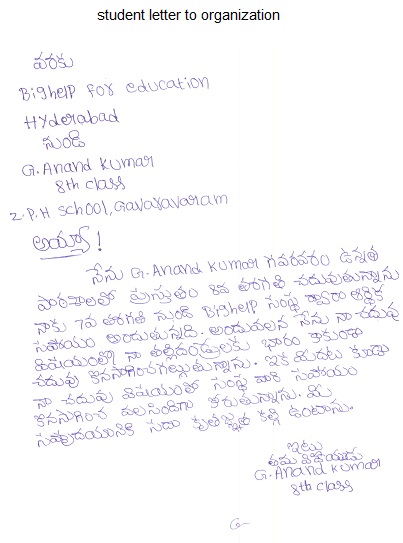 student letter to organization
వరకు
Bighelp for education
Hyderabad
నుండి
G. Anand Kumar
8th class
Z.P.H school, Gavaravaram
అయ్యా!
నేను G. Anand Kumar గవరవరం ఉన్నత
పాఠశాలలో ప్రస్తుతం 8వ తరగతి చదువుతున్నాను
నాకు 7వ తరగతి నుండి Bighelp సంస్థ ద్వారా ఆర్థిక
సహాయం అందుతున్నది. అందువలన నేను నా చదువు
విషయంలో నా తల్లిదండ్రులకు భారం కాకుండా
చదువు కొనసాగించగల్గుతున్నాను. ఇక మీదట కూడా
నా చదువు విషయంలో సంస్థ వారి సహాయం
కొనసాగించ వలసిందిగా కోరుతున్నాను. మీ
సహృదయానికి సదా కృతజ్ఞత కల్గి ఉంటాను.
ఇట్లు
తమ విధేయుడు
G. Anand Kumar
8th class